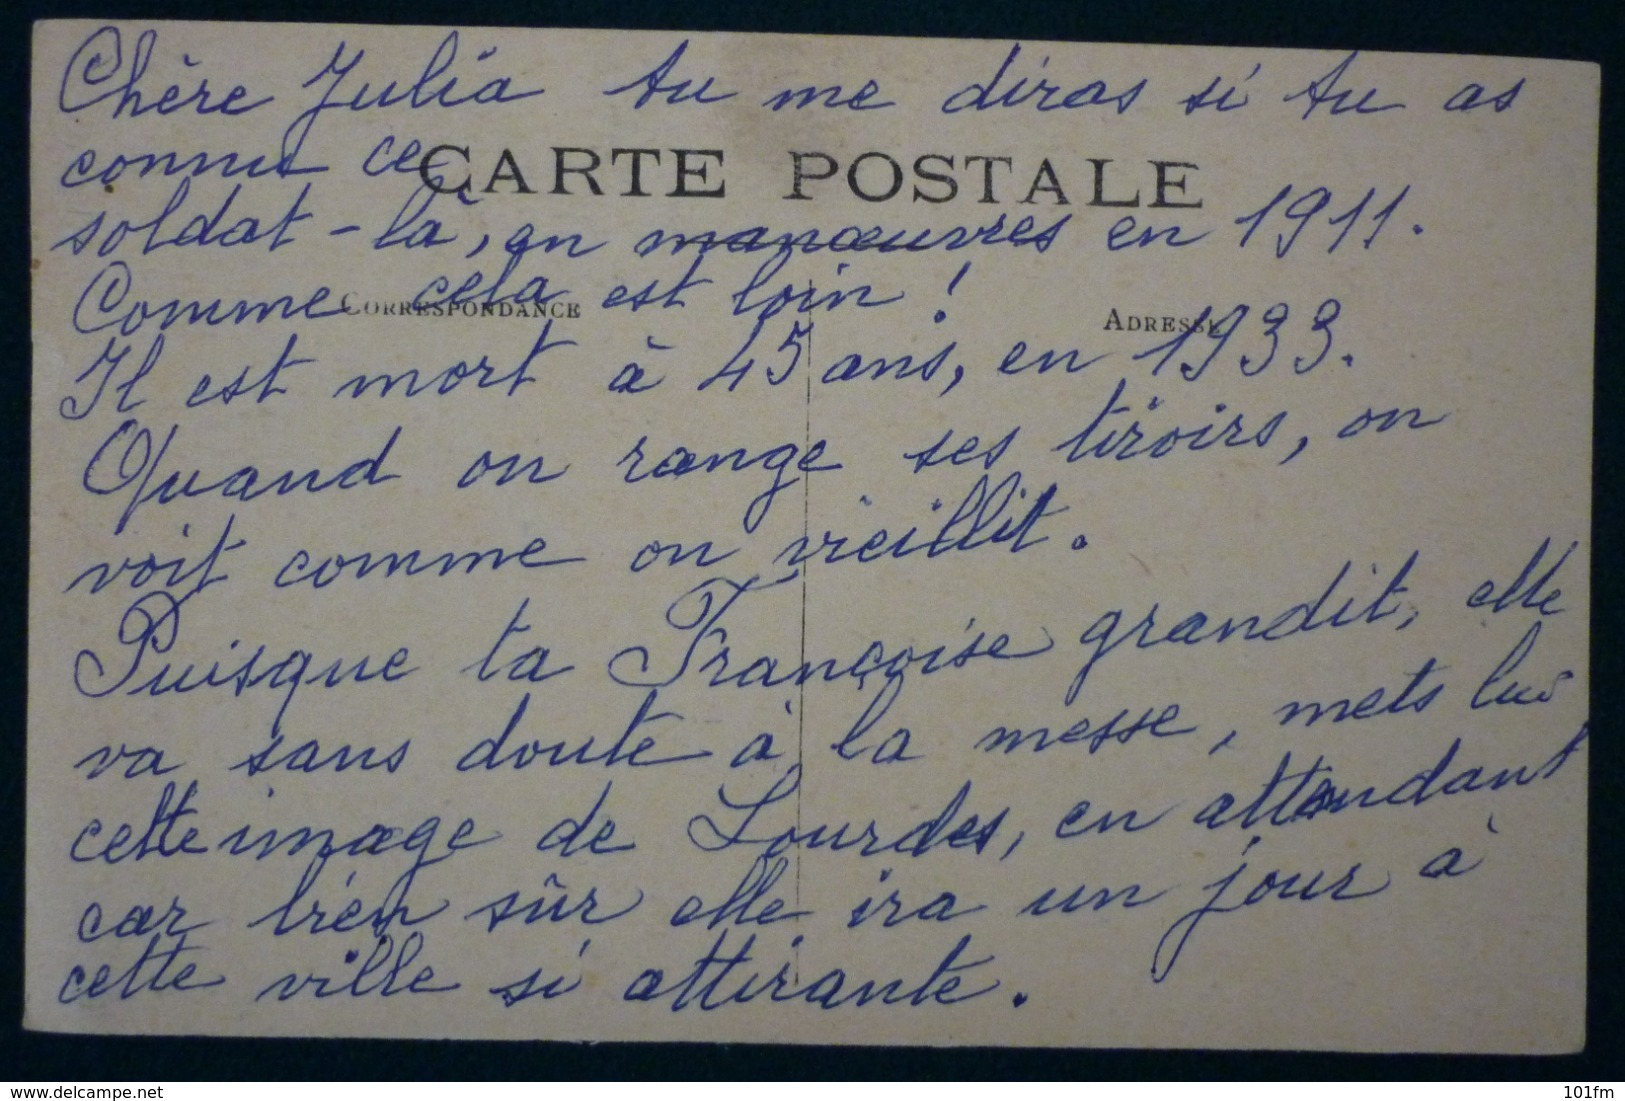 Chère Julia tu me diras si tu as
connu ce
CARTE POSTALE
soldat-là, en manœuvres en 1911.
Comme cela est loin !
CORRESPONDANCE
ADRESSE
Il est mort à 45 ans, en 1933.
Quand on range ses tiroirs, on
voit comme on vieillit.
Puisque ta Françoise grandit, elle
va sans doute à la messe, mets lui
cette image de Lourdes, en attendant
car bien sûr elle ira un jour à
cette ville si attirante.
www.delcampe.net
101fm